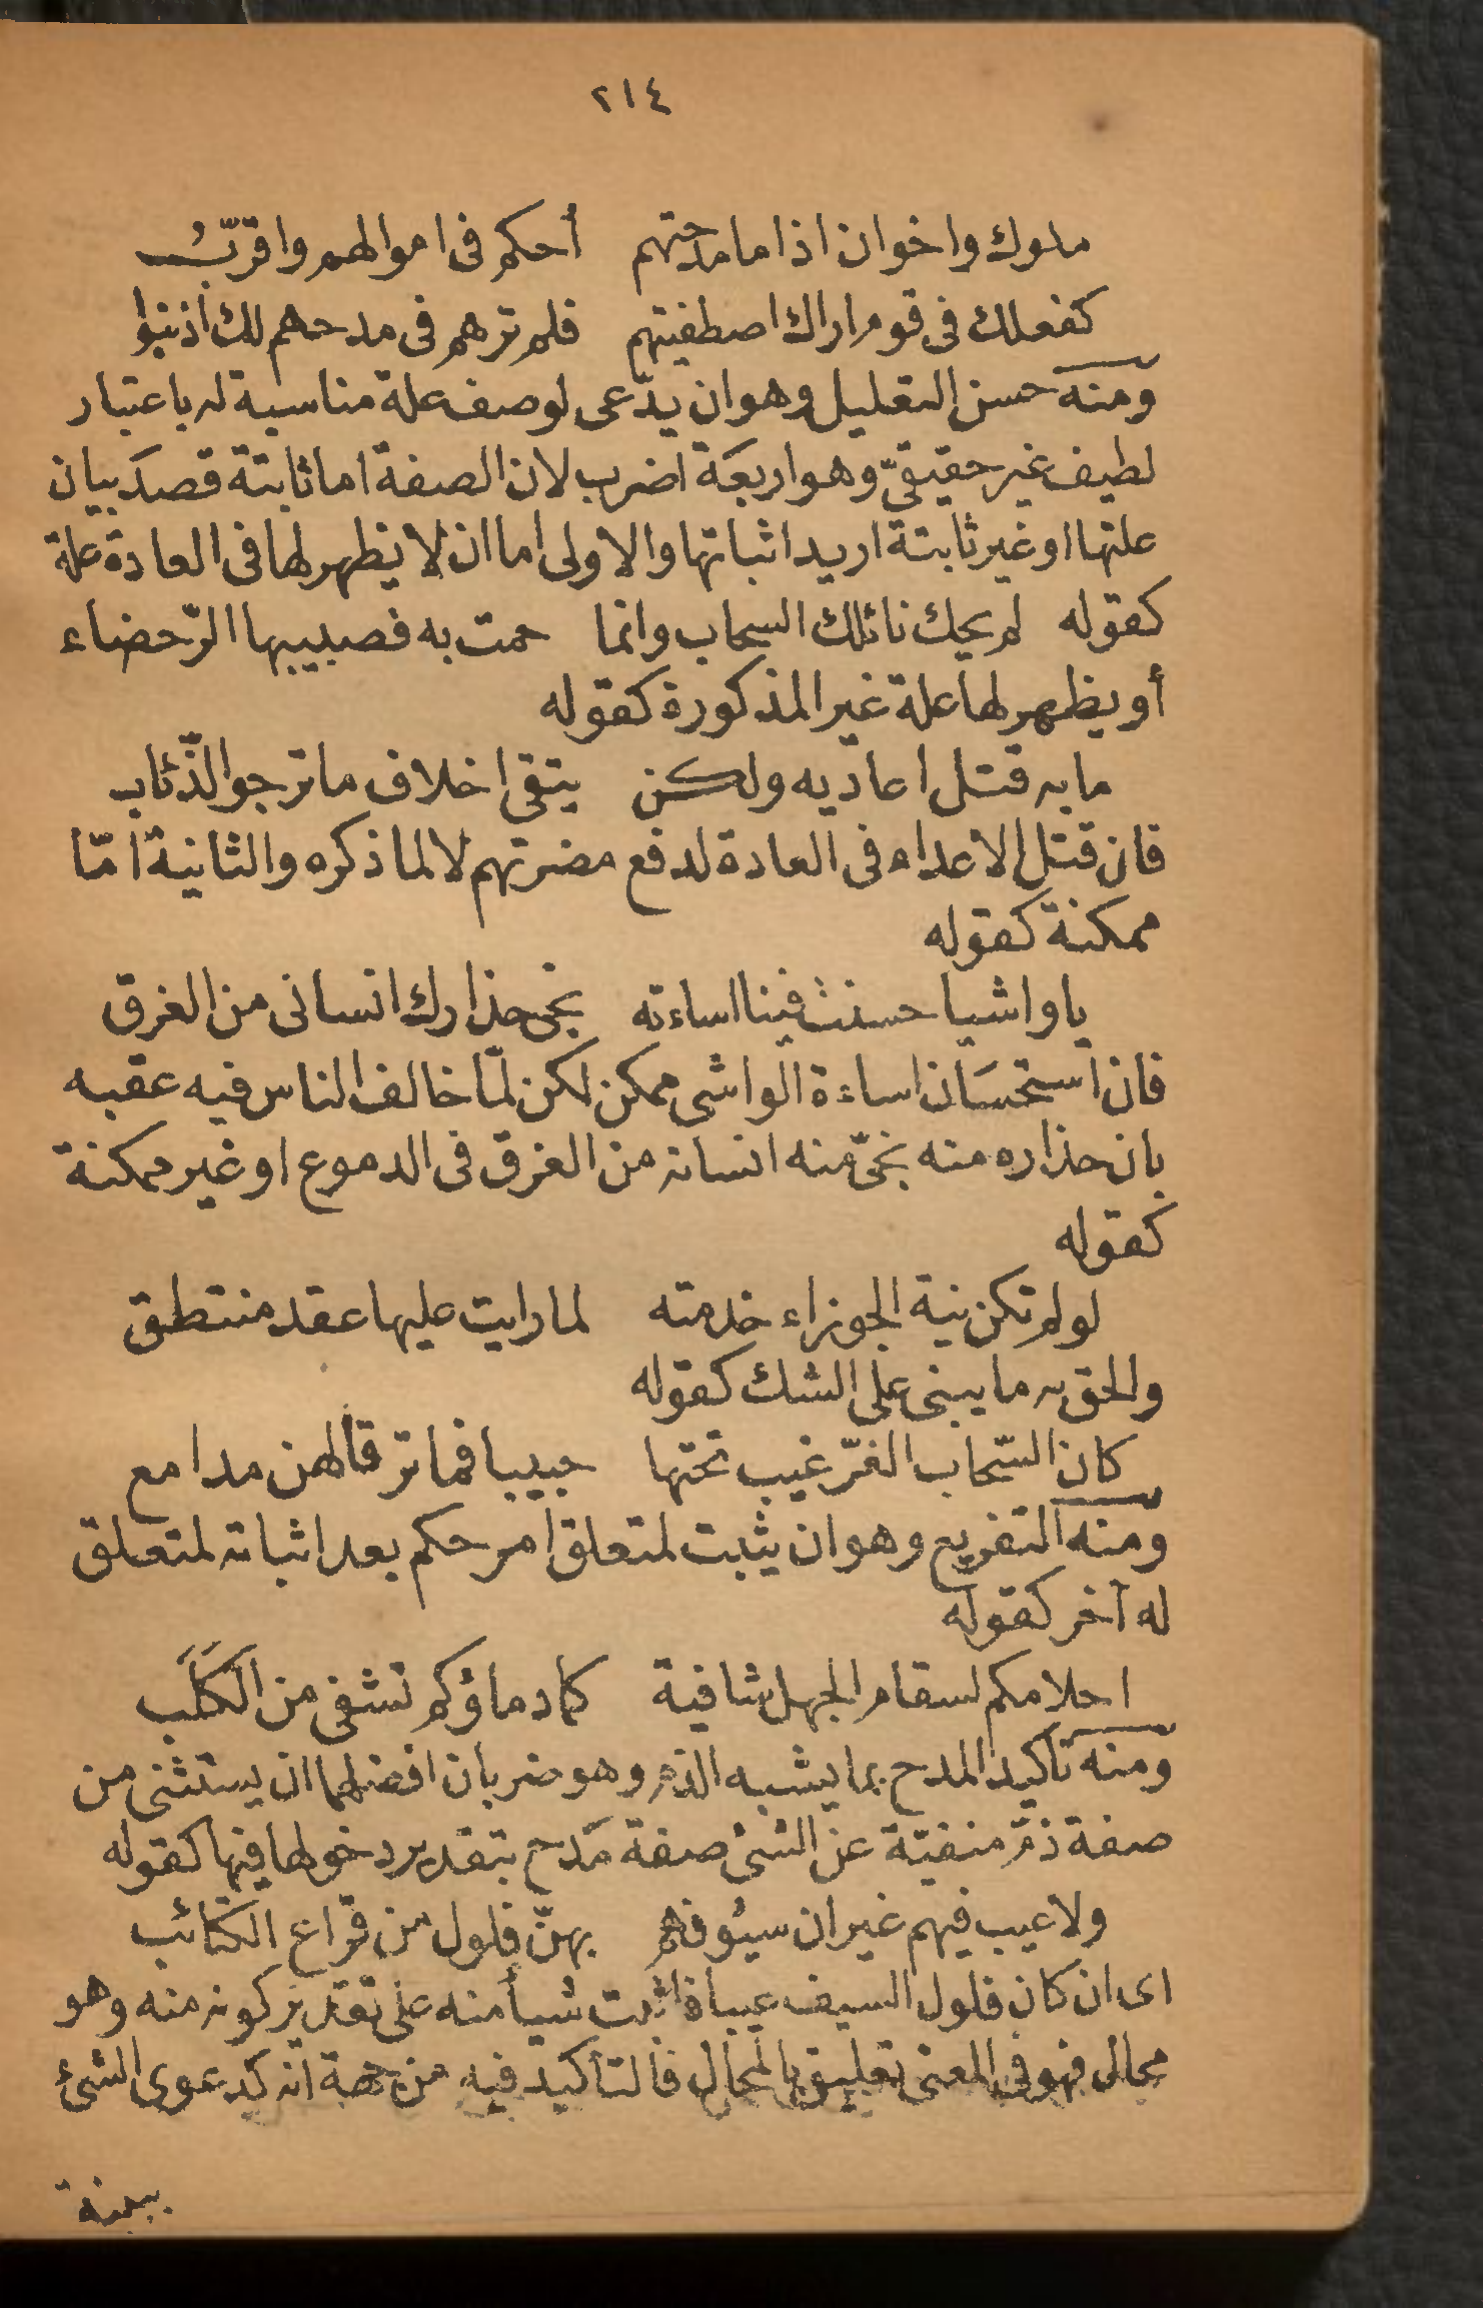 ٢١٤
ملوك واخوان اذا ما مدحتهم أحكم فى اموالهم واقرّبُ
كفعلك فى قوم اراك اصطفيتهم فلم ترهم فى مدحهم لك اذنبوا
ومنه حسن التعليل وهو ان يدّعى لوصف علة مناسبة له باعتبار
لطيف غير حقيقىّ وهو اربعة اضرب لان الصفة اما ثابتة قصد بيان
علتها او غير ثابتة اريد اثباتها والاولى اما ان لا يظهر لها فى العادة علة
كقوله لم يحك نائلك السحاب وانما حمت به فصبيبها الرّحضاء
أو يظهر لها علة غير المذكورة كقوله
ما به قتل اعاديه ولكن يتقى اخلاف ما ترجو الذّئاب
فان قتل الاعداء فى العادة لدفع مضرتهم لا لما ذكره والثانية امّا
ممكنة كقوله
يا واشيا حسنت فينا اساءته نجى حذارك انسانى من الغرق
فان استحسَان اساءة الواشى ممكن لكن لمّا خالف الناس فيه عقبه
بان حذاره منه نجّى منه انسانه من الغرق فى الدموع او غير ممكنة
كقوله
لو لم تكن نية الجوزاء خدمته لما رايت عليها عقد منتطق
والحق به ما يبنى على الشك كقوله
كان السّحاب الغرّ غيب تحتها حبيبا فما ترقأ لهن مدامع
ومنه التفريع وهو ان يثبت لمتعلق امر حكم بعد اثباته لمتعلق
له آخر كقوله
احلامكم لسقام الجهل شافية كما دماؤكم تشفى من الكَلَب
ومنه تاكيد المدح بما يشبه الذم وهو ضربان افضلهما ان يستثنى من
صفة ذمّ منفيّة عن الشئ صفة مَدح بتقدير دخولها فيها كقوله
ولا عيب فيهم غير ان سيُوفهم بهنّ فلول من قراع الكتائب
اى ان كان فلول السيف عيبا فاثبت شيأ منه على تقدير كونه منه وهو
محال فهو فى المعنى تعليق بالمحال فالتأكيد فيه من جهة انه كدعوى الشئ
ببينة